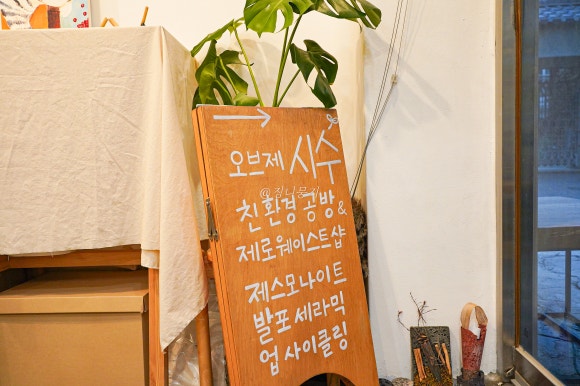 오브제 시수
@집나뭉치
친환경 공방 &
제로웨이스트샵
제스모나이트
발포 세라믹
업사이클링